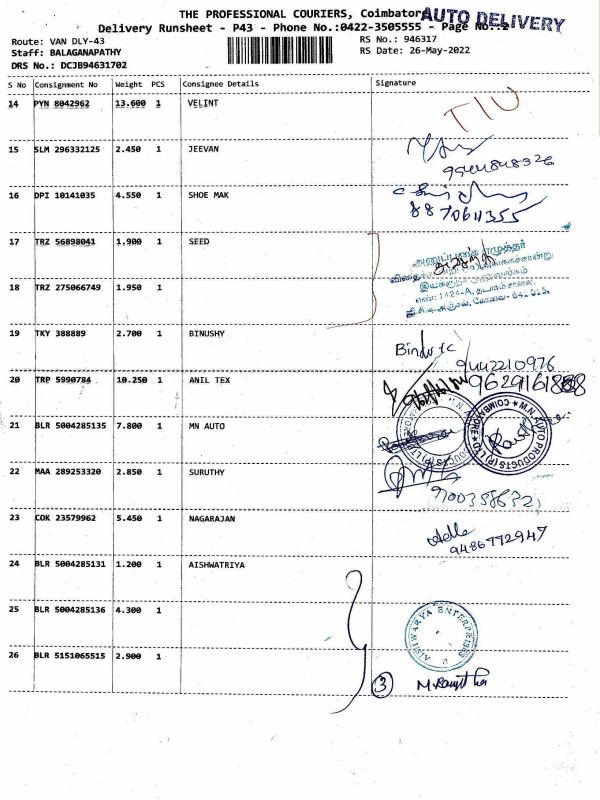 THE PROFESSIONAL COURIERS, Coimbatore
AUTO DELIVERY
Delivery Runsheet - P43 - Phone No.:0422-3505555 - Page No.:2
Route: VAN DLY-43
RS No.: 946317
Staff: BALAGANAPATHY
RS Date: 26-May-2022
DRS No.: DCJB94631702
S No Consignment No Weight PCS Consignee Details Signature
14 PYN 8042962 13.600 1 VELINT
TIU
15 SLM 296332125 2.450 1 JEEVAN
9544848326
16 DPI 10141035 4.550 1 SHOE MAK
8870641355
17 TRZ 56898041 1.900 1 SEED
18 TRZ 275066749 1.950 1
19 TKY 388889 2.700 1 BINUSHY
9442210976
20 TRP 5990784 10.250 1 ANIL TEX
21 BLR 5004285135 7.800 1 MN AUTO
M.N. AUTO PRODUCTS (P) LTD. COIMBATORE
22 MAA 289253320 2.850 1 SURUTHY
23 COK 23579962 5.450 1 NAGARAJAN
9486772947
24 BLR 5004285131 1.200 1 AISHWATRIYA
25 BLR 5004285136 4.300 1
AISHWARYA ENTERPRISES
26 BLR 5151065515 2.900 1
3